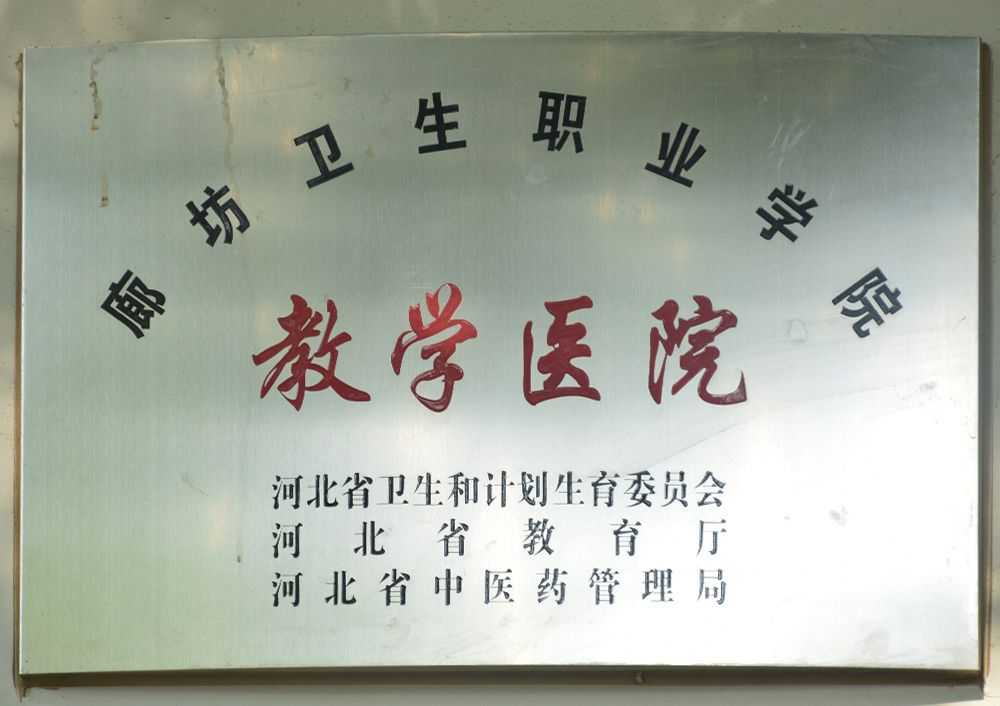 廊坊卫生职业学院
教学医院
河北省卫生和计划生育委员会
河北省教育厅
河北省中医药管理局